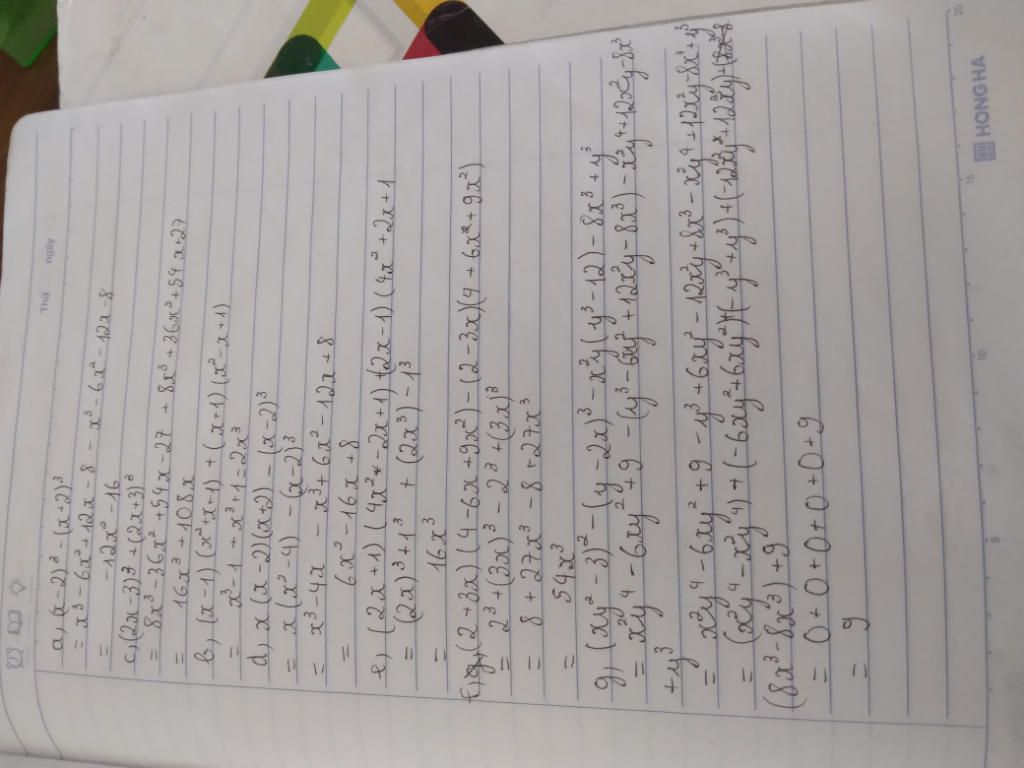 Thứ
ngày
a, (x-2)³ - (x+2)³
= x³ - 6x² + 12x - 8 - x³ - 6x² - 12x - 8
= -12x² - 16
c, (2x-3)³ + (2x+3)³
= 8x³ - 36x² + 54x - 27 + 8x³ + 36x² + 54x + 27
= 16x³ + 108x
b, (x-1)(x²+x+1) + (x+1)(x²-x+1)
= x³ - 1 + x³ + 1 = 2x³
d, x(x-2)(x+2) - (x-2)³
= x(x²-4) - (x-2)³
= x³ - 4x - x³ + 6x² - 12x + 8
= 6x² - 16x + 8
e, (2x+1)(4x² - 2x+1) + (2x-1)(4x² + 2x+1
= (2x)³ + 1³ + (2x³) - 1³
= 16x³
(2+3x)(4-6x+9x²) - (2-3x)(4+6x+9x²)
= 2³ + (3x)³ - 2³ + (3x)³
= 8 + 27x³ - 8 + 27x³
= 54x³
g, (xy² - 3)² - (y-2x)³ - x²y(y³-12) - 8x³ + y³
= x²y⁴ - 6xy² + 9 - (y³ - 6xy² + 12x²y - 8x³) - x²y⁴ + 12x²y - 8x³
+ y³
= x²y⁴ - 6xy² + 9 - y³ + 6xy² - 12x²y + 8x³ - x²y⁴ + 12x²y - 8x³ + y³
= (x²y⁴ - x²y⁴) + (-6xy² + 6xy²) + (-y³ + y³) + (-12x²y + 12x²y) +
(8x³ - 8x³) + 9
= 0 + 0 + 0 + 0 + 9
= 9
5
10
15
20
HONGHA